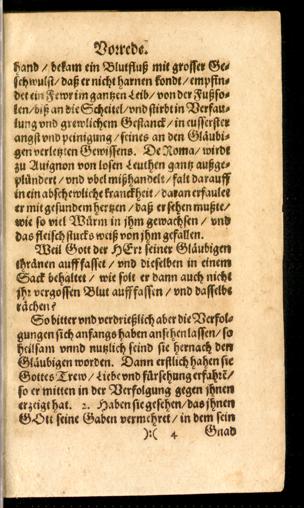 Vorrede.
hand / bekam ein Blutfluß mit grosser Ge-
schwulst / daß er nicht harnen kondt / empfin-
det ein Fewr im gantzen Leib / von der Fußso-
len / biß an die Scheitel / vnd stirbt in Verfau-
lung vnd grewlichem Gestanck / in eusserster
angst vnd peinigung / seines an den Gläubi-
gen verletzten Gewissens. De Roma / wirdt
zu Auignon von losen Leuthen gantz außge-
plündert / vnd vbel mißhandelt / falt darauff
in ein abschewliche kranckheit / daran erfaulet
er mit gesundem hertzen / daß er sehen mußte /
wie so viel Würm in jhm gewachsen / vnd
das fleisch stucks weiß von jhm gefallen.
Weil Gott der HErr seiner Gläubigen
thränen auff fasset / vnd dieselben in einem
Sack behaltet / wie solt er dann auch nicht
jhr vergossen Blut auff fassen / vnd dasselbe
rächen?
So bitter vnd verdrießlich aber die Verfol-
gungen sich anfangs haben ansehen lassen / so
heilsam vnnd nutzlich seind sie hernach den
Gläubigen worden. Dann erstlich haben sie
Gottes Trew / Liebe vnd fürsehung erfahrẽ /
so er mitten in der Verfolgung gegen jhnen
erzeigt hat. 2. Haben sie gesehen / das jhnen
GOtt seine Gaben vermehret / in dem sein
):( 4 Gnad